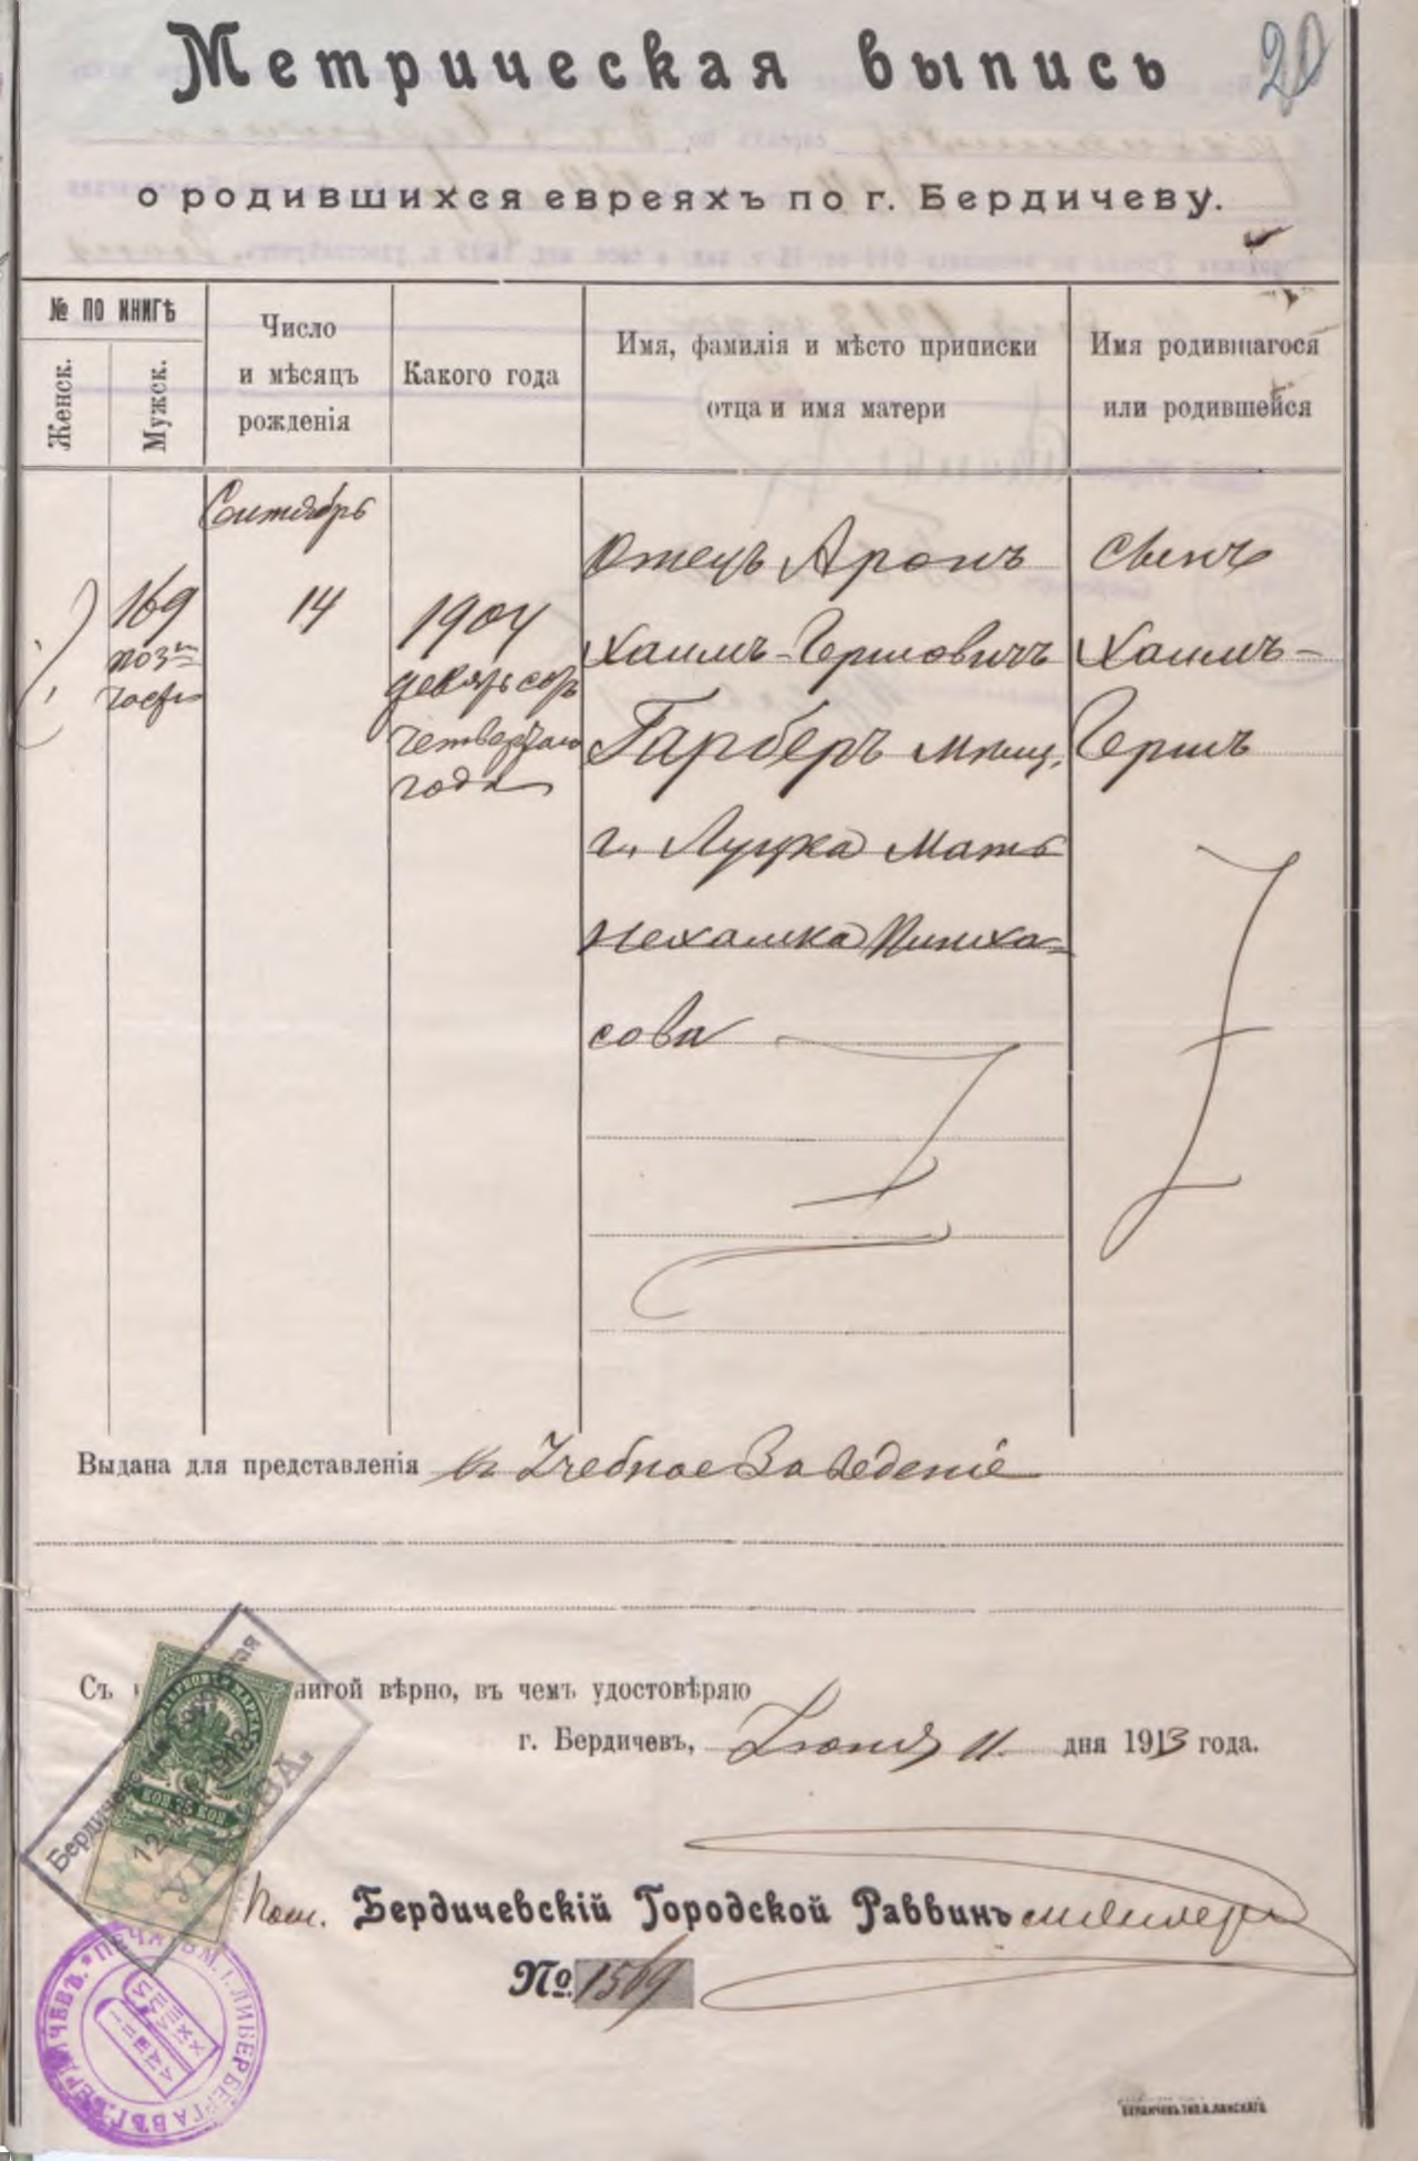 20
Метрическая выпись
о родившихся евреяхъ по г. Бердичеву.
№ ПО КНИГѢ
Женск.
Мужск.
Число
и мѣсяцъ
рожденія
Какого года
Имя, фамилія и мѣсто приписки
отца и имя матери
Имя родившагося
или родившейся
169
Сентябрь
14
1904
девятьсотъ
четвертаго
года
Отецъ Аронъ
Хаимъ-Гершовичъ
Гарберъ мѣщ.
г. Луцка Мать
Нехамка Пинха-
сова
Сынъ
Хаимъ-
Гершъ
Выдана для представленія въ Учебное Заведеніе
Съ книгой вѣрно, въ чемъ удостовѣряю
г. Бердичевъ, Іюня 11 дня 1913 года.
Пом. Бердичевскій Городской Раввинъ
№ 1569
КОП 75 КОП
УПРАВА.
БЕРДИЧЕВЪ ТИП. А. ЛАНСКАГО